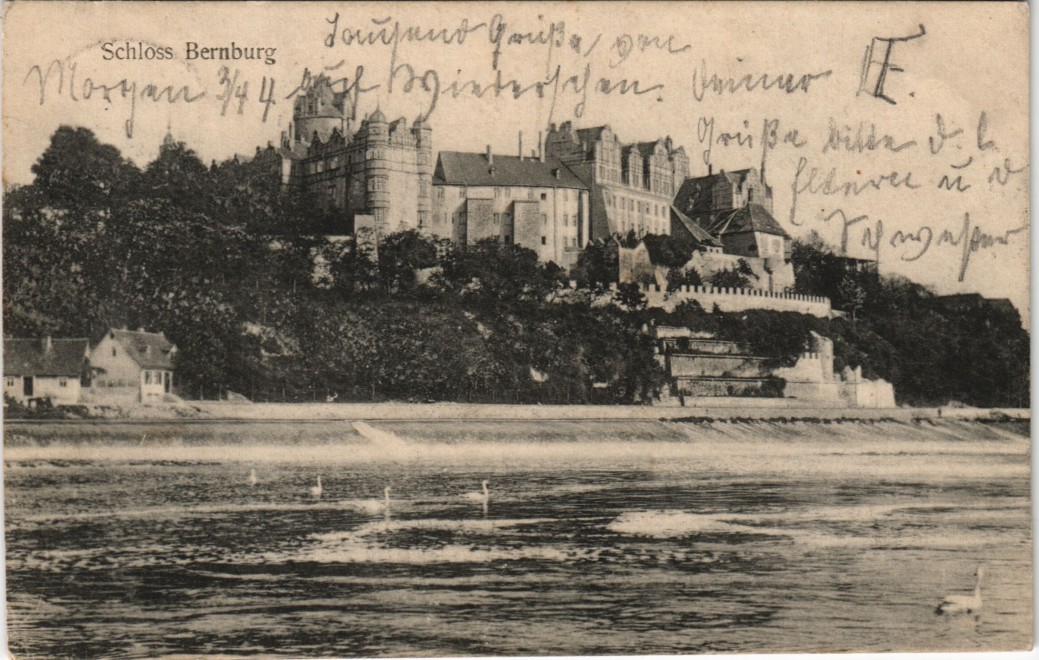 Schloss Bernburg
Tausend Grüße von
Morgen 3/4 4 auf Wiedersehen. Deiner E.
Grüße bitte d. l.
Eltern u d
Schwester